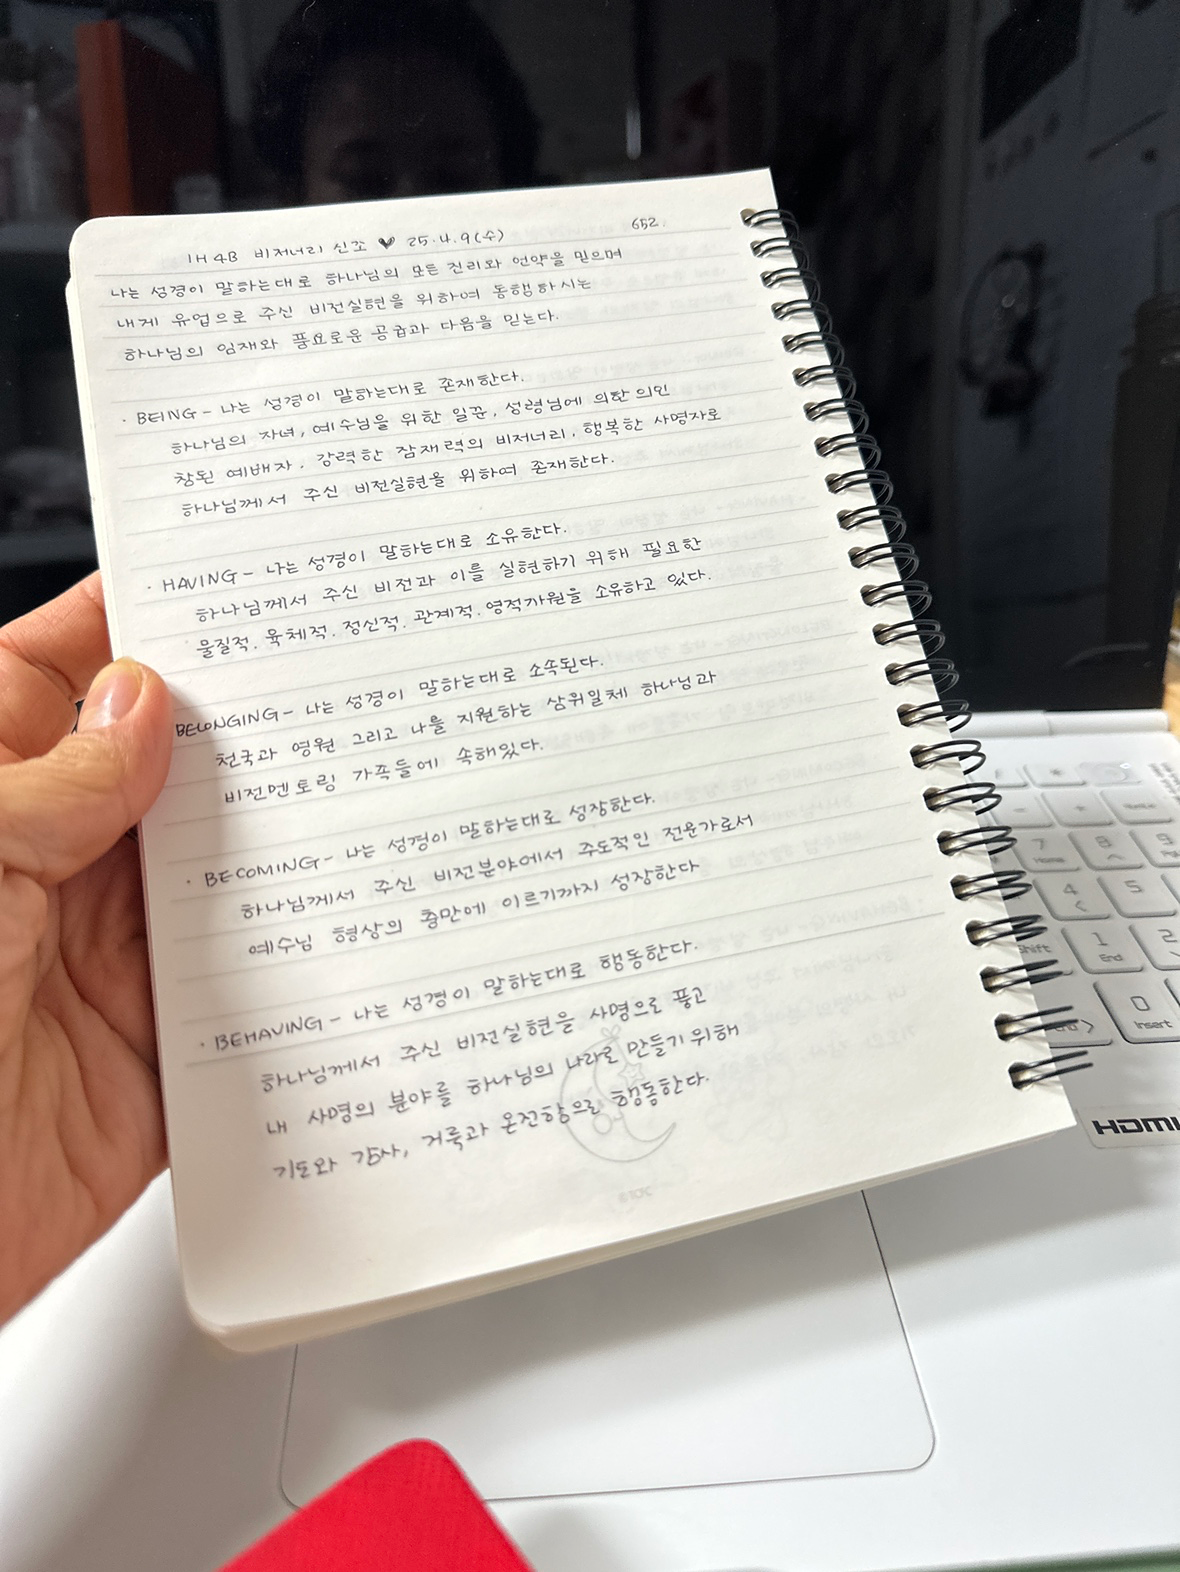 1H4B 비저너리 신조 ♥ 25.4.9(수)
652.
나는 성경이 말하는대로 하나님의 모든 진리와 언약을 믿으며
내게 유업으로 주신 비전실현을 위하여 동행하시는
하나님의 임재와 풍요로운 공급과 다음을 믿는다.
· BEING - 나는 성경이 말하는대로 존재한다.
하나님의 자녀, 예수님을 위한 일꾼, 성령님에 의한 의인
참된 예배자, 강력한 잠재력의 비저너리, 행복한 사명자로
하나님께서 주신 비전실현을 위하여 존재한다.
· HAVING - 나는 성경이 말하는대로 소유한다.
하나님께서 주신 비전과 이를 실현하기 위해 필요한
물질적. 육체적. 정신적. 관계적. 영적자원을 소유하고 있다.
BELONGING - 나는 성경이 말하는대로 소속된다.
천국과 영원 그리고 나를 지원하는 삼위일체 하나님과
비전멘토링 가족들에 속해있다.
· BECOMING - 나는 성경이 말하는대로 성장한다.
하나님께서 주신 비전분야에서 주도적인 전문가로서
예수님 형상의 충만에 이르기까지 성장한다
· BEHAVING - 나는 성경이 말하는대로 행동한다.
하나님께서 주신 비전실현을 사명으로 품고
내 사명의 분야를 하나님의 나라로 만들기 위해
기도와 감사, 거룩과 온전함으로 행동한다.
7 Home
8
9
4
5
1 End
2
0 Insert
Shift
HDMI